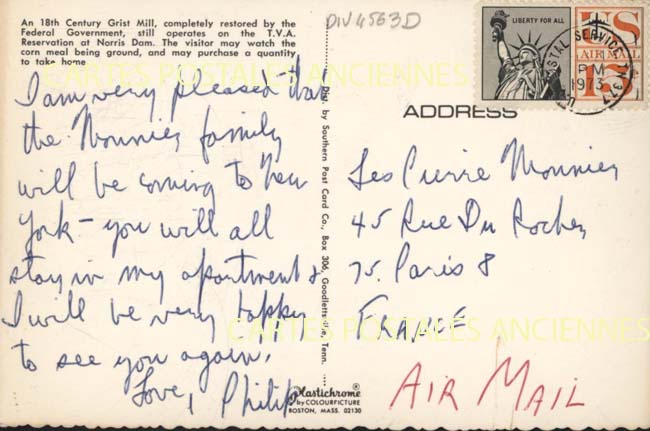 An 18th Century Grist Mill, completely restored by the
Federal Government, still operates on the T.V.A.
Reservation at Norris Dam. The visitor may watch the
corn meal being ground, and may purchase a quantity
to take home
I am very pleased that
the Monnier family
will be coming to New
York - you will all
stay in my apartment &
I will be very happy
to see you again.
Love, Philip
Dist. by Southern Post Card Co., Box 306, Goodlettsville, Tenn.
Plastichrome®
by COLOURPICTURE
BOSTON, MASS. 02130
DIV4563D
LIBERTY FOR ALL
US
AIR MAIL
POSTAL SERVICE
PM
1973
ADDRESS
Les Pierre Monnier
45 Rue Du Rocher
75. Paris 8
FRANCE
AIR MAIL
CARTES POSTALES ANCIENNES
CARTES POSTALES ANCIENNES